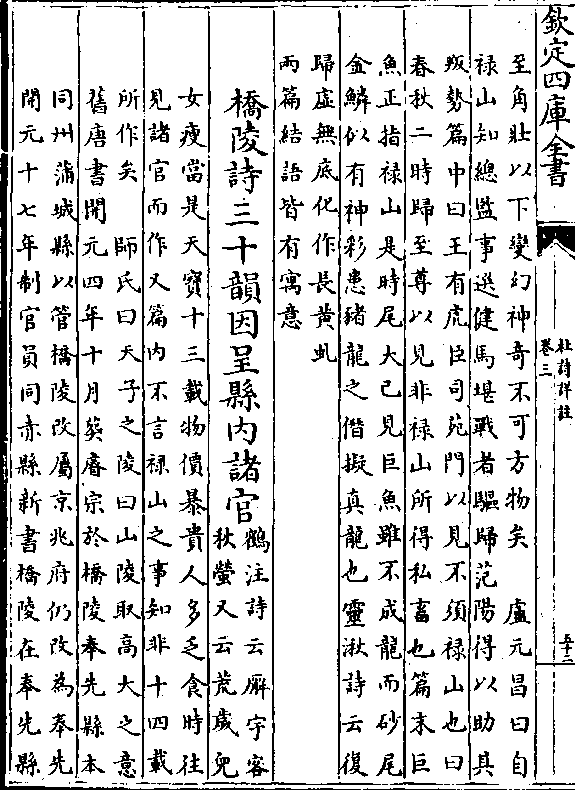 欽定四庫全書
杜詩詳註
卷三
五十三
至角壯以下變幻神奇不可方物矣　盧元昌曰自
禄山知總監事選健馬堪戰者驅歸范陽得以助其
叛勢篇中曰王有虎臣司苑門以見不須禄山也曰
春秋二時歸至尊以見非禄山所得私畜也篇末巨
魚正指禄山是時尾大已見巨魚雖不成龍而砂尾
金鱗似有神彩患豬龍之僭擬真龍也靈湫詩云復
歸虛無底化作長黄虬
兩篇結語皆有寓意
橋陵詩三十韻因呈縣内諸官
鶴注詩云廨宇容
秋螢又云荒歲兒
女瘦當是天寶十三載物價暴貴人多乏食時往
見諸官而作又篇内不言禄山之事知非十四載
所作矣　師氏曰天子之陵曰山陵取高大之意
舊唐書開元四年十月葬睿宗於橋陵奉先縣本
同州蒲城縣以管橋陵改屬京兆府仍改為奉先
開元十七年制官員同赤縣新書橋陵在奉先縣